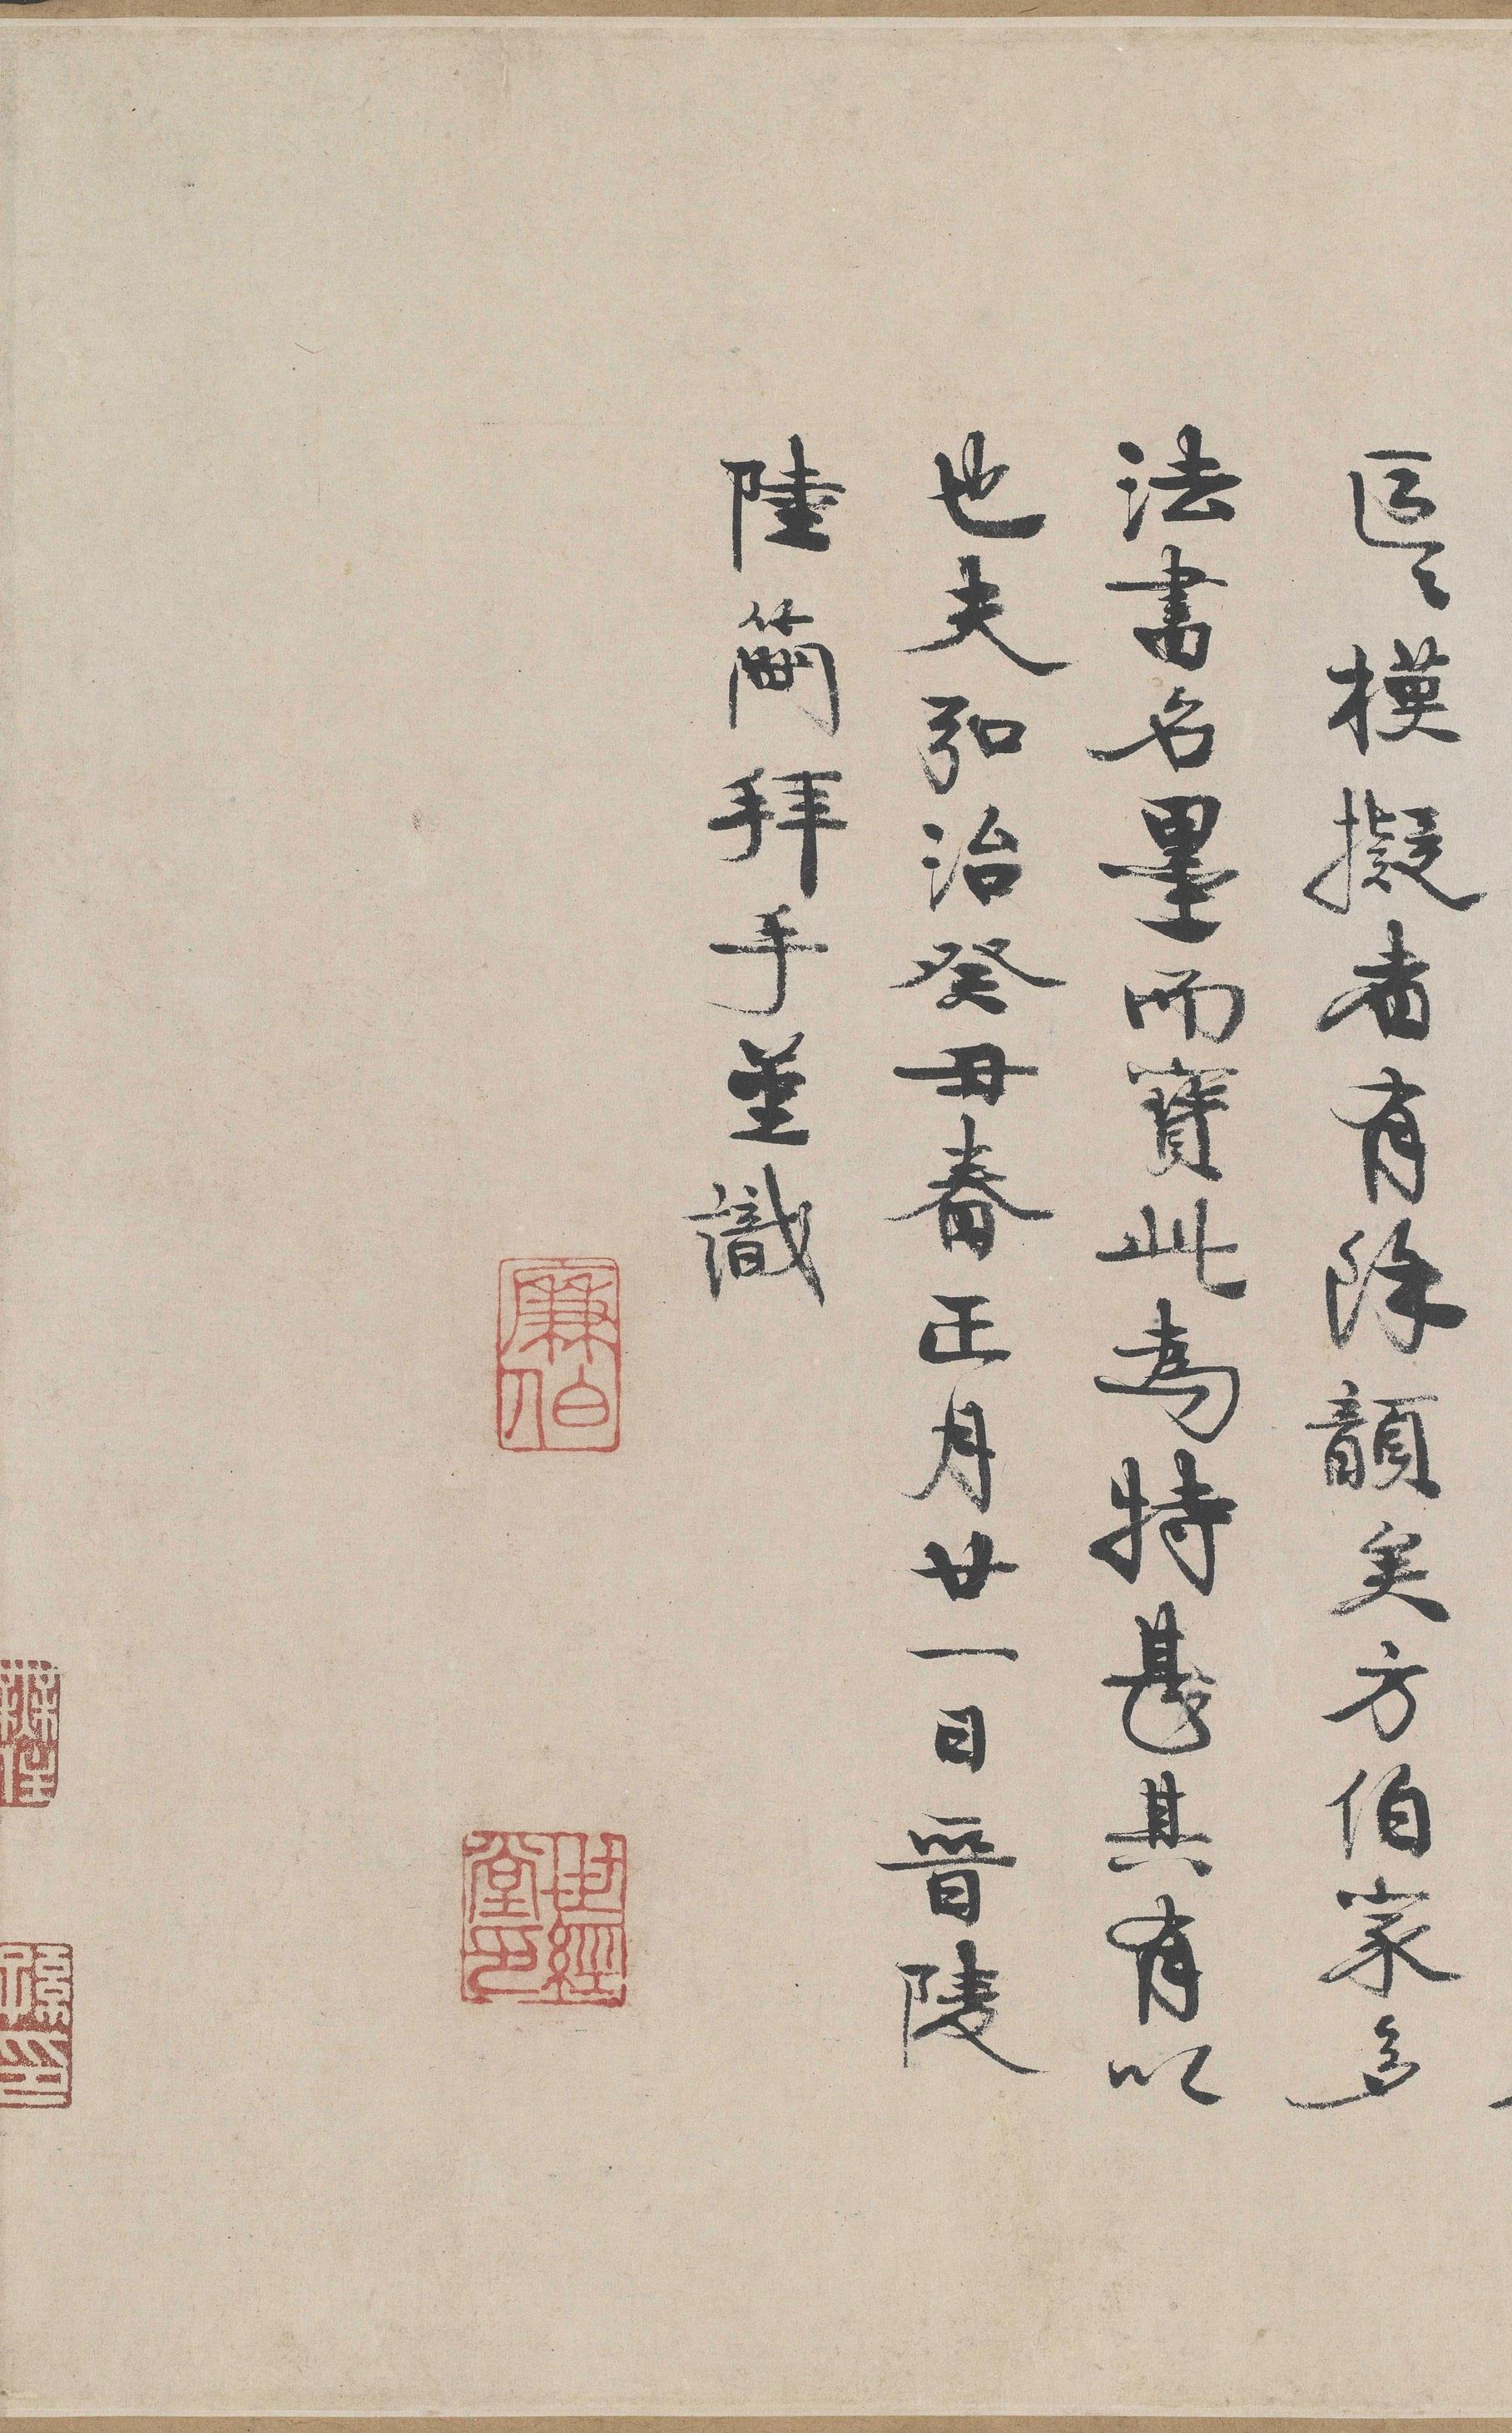 區〻模擬者有除韻矣方伯家多
法書名墨而寶此為特甚其有以
也夫弘治癸丑春正月廿一日晉陵
陸簡拜手並識
廉伯
世經堂印